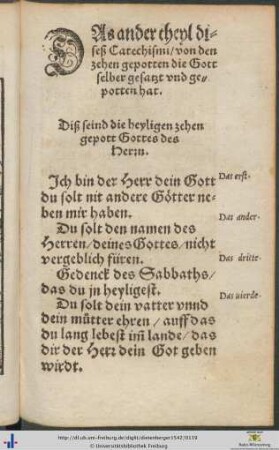 DAs ander theyl di-
seß Catechismi/ von den
zehen gepotten die Gott
selber gesatzt vnd ge-
potten hat.
Diß seind die heyligen zehen
gepott Gottes des
Herrn.
Ich bin der Herr dein Gott
du solt nit andere Götter ne-
ben mir haben.
Das erst-
Du solt den namen des
Herren/ deines Gottes/ nicht
vergeblich füren.
Das ander-
Gedenck des Sabbaths/
das du jn heyligest.
Das dritte-
Du solt dein vatter vnnd
dein mütter ehren/ auff das
du lang lebest im̄ lande/ das
dir der Herr dein Got geben
wirdt.
Das vierde-
http://dl.ub.uni-freiburg.de/diglit/dietenberger1542/0159
© Universitätsbibliothek Freiburg
Baden-Württemberg